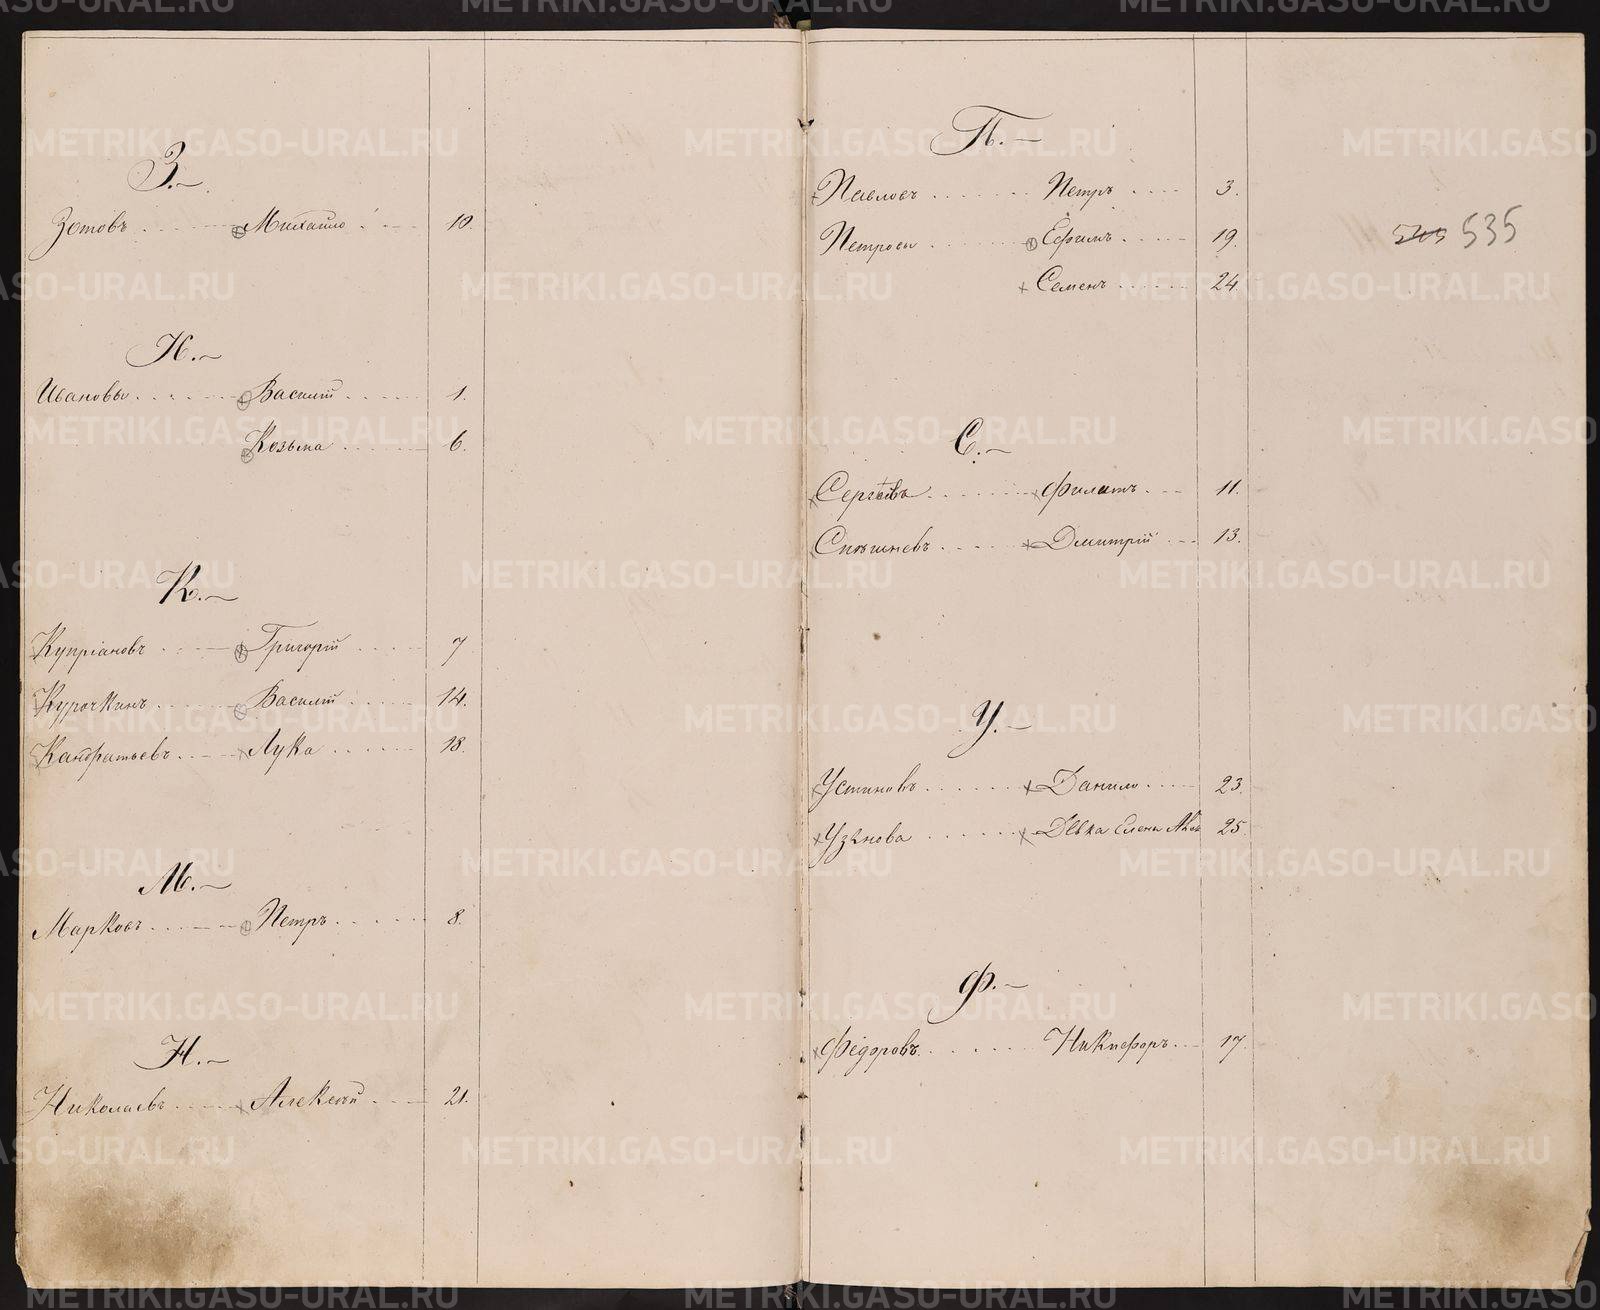 З.
Зотовъ Михайло 10.
И.
Ивановы Василій 1.
Козьма 6.
К.
Купріановъ Григорій 7
Курочкинъ Василій 14.
Кандратьевъ Лука 18.
М.
Марковъ Петръ 8.
Н.
Николаевъ Алексѣй 21.
П.
Павловъ Петръ 3.
Петровы Ефимъ 19.
Семенъ 24.
535
С.
Сергѣевъ Филатъ 11.
Спѣшневъ Дмитрій 13.
У.
Устиновъ Данило 23.
Узянова Дѣвка Елена 25.
Ф.
Федоровъ Никифоръ 17.
METRIKI.GASO-URAL.RU